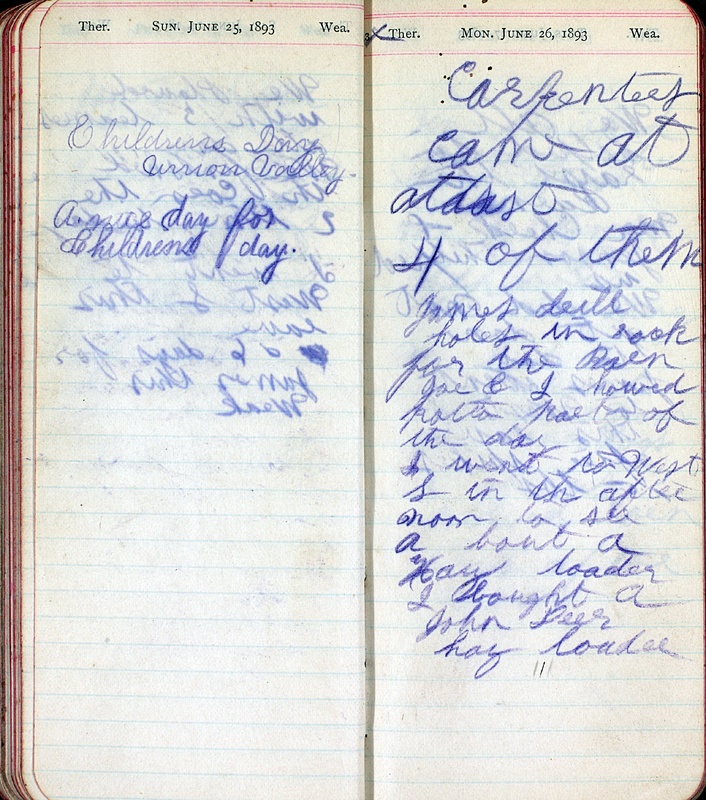 Ther. SUN. JUNE 25, 1893 Wea.
Childrens Day
Union Valley.
A nice day for
Childrens day.
Ther. MON. JUNE 26, 1893 Wea.
Carpenters
cam at
atlast
4 of them
James drill
holes in rock
for the Barn
Joe & I howed
potto part of
the day
I went to West
S in in after
noon to see
a bout a
Hay loader
I bought a
John Deer
hay loader